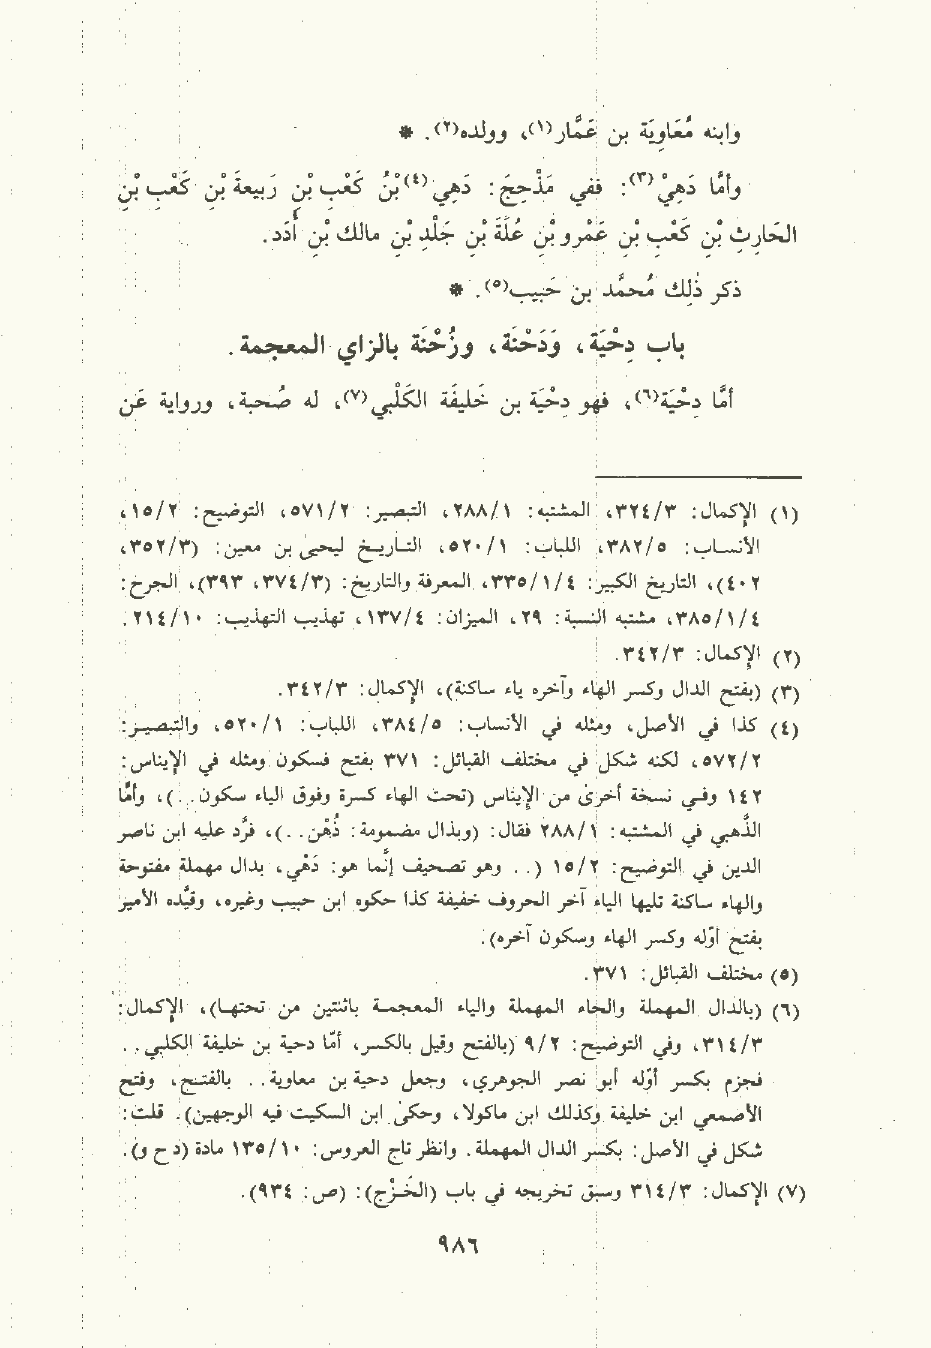 وابنه مُعَاوِيَة بن عَمَّار(١)، وولده(٢). *
وأمَّا دَهِيْ(٣): ففي مَذْحِج: دَهِي(٤) بْنُ كَعْبِ بْنِ رَبيعةَ بْنِ كَعْبِ بْنِ
الحَارِثِ بْنِ كَعْبِ بْنِ عَمْرو بْنِ عُلَةَ بْنِ جَلْدِ بْنِ مالك بْنِ أُدَد.
ذكر ذٰلِك مُحمَّد بن حَبيب(٥). *
باب دِحْيَة، وَدَحْنَة، وزُحْنَة بالزاي المعجمة.
أمَّا دِحْيَة(٦)، فهو دِحْيَة بن خَليفَة الكَلْبي(٧)، له صُحبة، ورواية عَن
(١) الإكمال: ٣٢٤/٣، المشتبه: ٢٨٨/١، التبصير: ٥٧١/٢، التوضيح: ١٥/٢،
الأنساب: ٣٨٢/٥، اللباب: ٥٢٠/١، التاريخ ليحيى بن معين: (٣٥٢/٣،
٤٠٢)، التاريخ الكبير: ٣٣٥/١/٤، المعرفة والتاريخ: (٣٧٤/٣، ٣٩٣)، الجرح:
٣٨٥/١/٤، مشتبه النسبة: ٢٩، الميزان: ١٣٧/٤، تهذيب التهذيب: ٢١٤/١٠.
(٢) الإكمال: ٣٤٢/٣.
(٣) (بفتح الدال وكسر الهاء وآخره ياء ساكنة)، الإكمال: ٣٤٢/٣.
(٤) كذا في الأصل، ومثله في الأنساب: ٣٨٤/٥، اللباب: ٥٢٠/١، والتبصير:
٥٧٢/٢، لكنه شكل في مختلف القبائل: ٣٧١ بفتح فسكون ومثله في الإيناس:
١٤٢ وفي نسخة أخرى من الإيناس (تحت الهاء كسرة وفوق الياء سكون..)، وأمَّا
الذَّهبي في المشتبه: ٢٨٨/١ فقال: (وبذال مضمومة: ذُهْن..)، فرَّد عليه ابن ناصر
الدين في التوضيح: ١٥/٢ (.. وهو تصحيف إنَّما هو: دَهْي، بدال مهملة مفتوحة
والهاء ساكنة تليها الياء آخر الحروف خفيفة كذا حكوه ابن حبيب وغيره، وقيَّده الأمير
بفتح أوّله وكسر الهاء وسكون آخره).
(٥) مختلف القبائل: ٣٧١.
(٦) (بالدال المهملة والحاء المهملة والياء المعجمة باثنتين من تحتها)، الإكمال:
٣١٤/٣، وفي التوضيح: ٩/٢ (بالفتح وقيل بالكسر، أمَّا دحية بن خليفة الكلبي..
فجزم بكسر أوّله أبو نصر الجوهري، وجعل دحية بن معاوية.. بالفتح، وفتح
الأصمعي ابن خليفة وكذلك ابن ماكولا، وحكى ابن السكيت فيه الوجهين). قلت:
شكل في الأصل: بكسر الدال المهملة. وانظر تاج العروس: ١٣٥/١٠ مادة (د ح و).
(٧) الإكمال: ٣١٤/٣ وسبق تخريجه في باب (الخَزْج): (ص: ٩٣٤).
٩٨٦